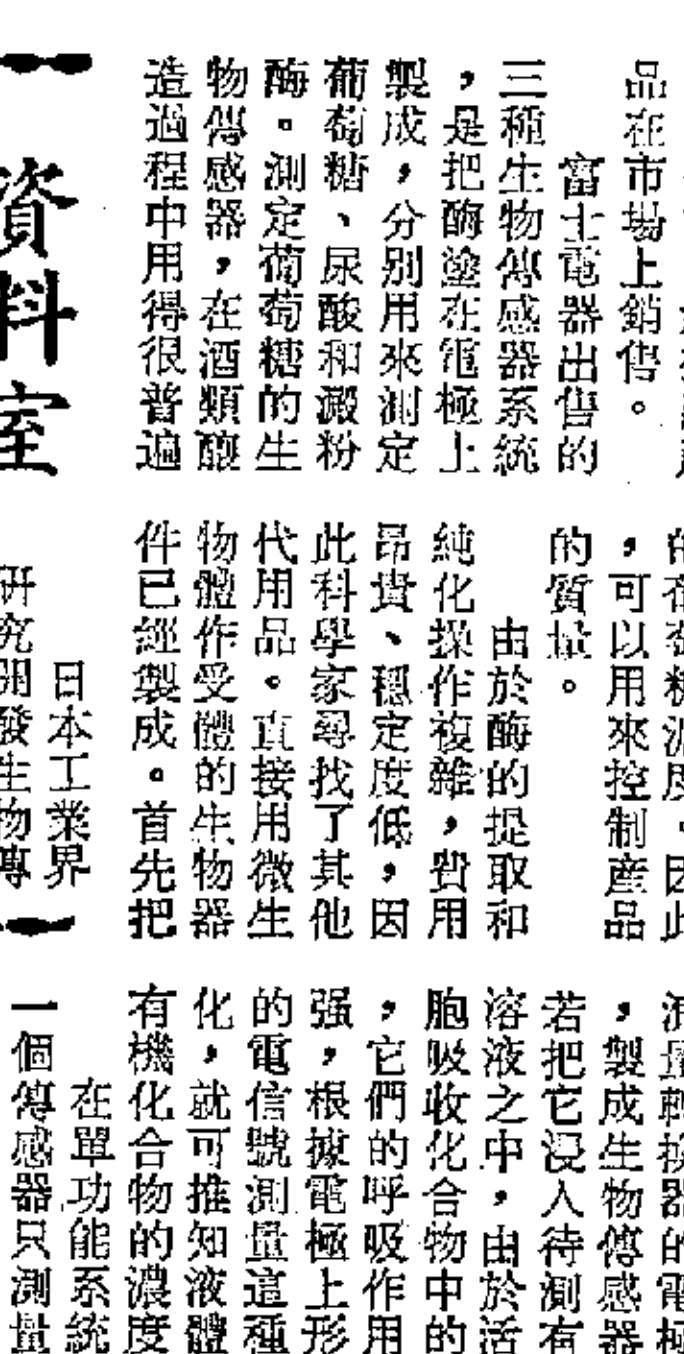 品在市場上銷售。
富士電器出售的
三種生物傳感器系統
，是把酶塗在電極上
製成，分別用來測定
葡萄糖、尿酸和澱粉
酶。測定葡萄糖的生
物傳感器，在酒類釀
造過程中用得很普遍
資料室
，可以用來控制產品
的質量。
由於酶的提取和
純化操作複雜，費用
昂貴、穩定度低，因
此科學家尋找了其他
代用品。直接用微生
物體作受體的生物器
件已經製成。首先把
日本工業界
研究開發生物傳
，製成生物傳感器
若把它浸入待測有
溶液之中，由於活
胞吸收化合物中的
，它們的呼吸作用
强，根據電極上形
的電信號測量這種
化，就可推知液體
有機化合物的濃度
在單功能系統
一個傳感器只測量